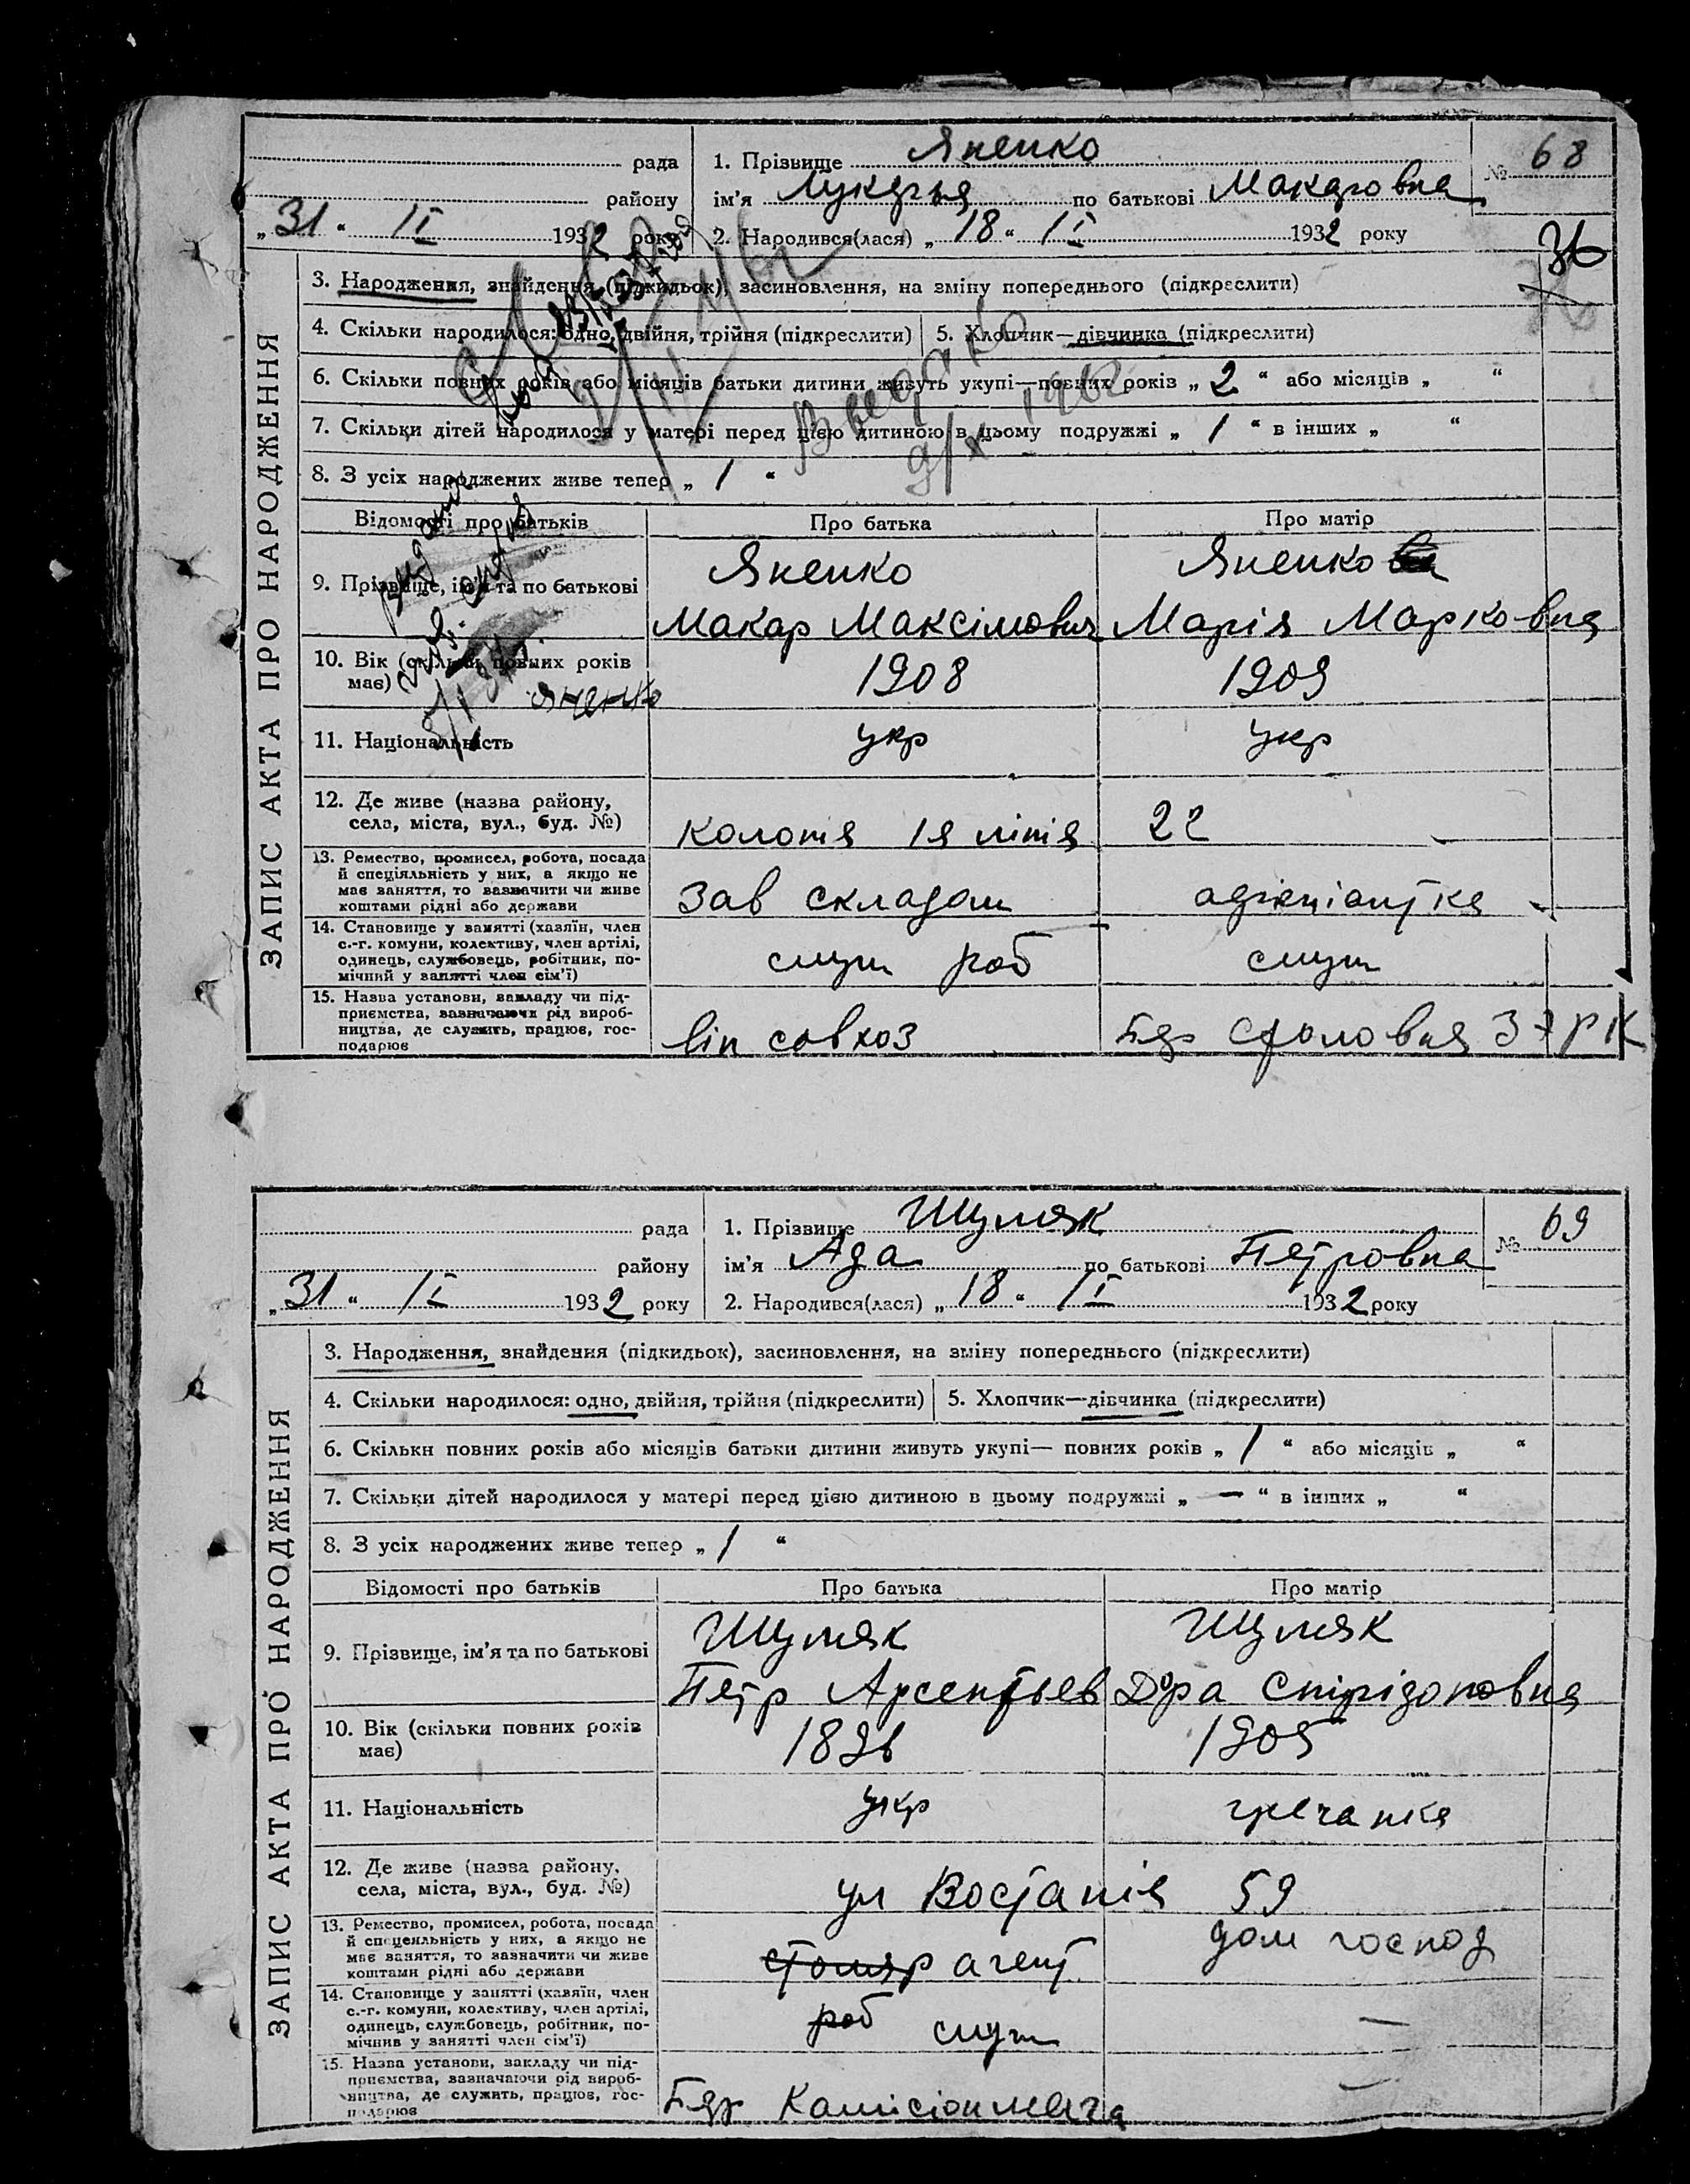 ЗАПИС АКТА ПРО НАРОДЖЕННЯ
рада
району
„31“ II 1932 року
1. Прізвище Яненко
ім'я Лукерья по батькові Макаровна
2. Народився(лася) „18“ II 1932 року
№ 68
36
3. Народження, знайдення (підкидьок), засиновлення, на зміну попереднього (підкреслити)
4. Скільки народилося: одно, двійня, трійня (підкреслити)
5. Хлопчик—дівчинка (підкреслити)
6. Скільки повних років або місяців батьки дитини живуть укупі—повних років „2“ або місяців „ “
7. Скільки дітей народилося у матері перед цією дитиною в цьому подружжі „1“ в інших „ “
8. З усіх народжених живе тепер „1“
Відомості про батьків Про батька Про матір
9. Прізвище, ім'я та по батькові
Яненко
Макар Максімович
Яненко
Марія Марковна
10. Вік (скільки повних років має) 1908 1909
Яненко
11. Національність укр укр
12. Де живе (назва району,
села, міста, вул., буд. №) Колонія 1я лінія 22
13. Ремество, промисел, робота, посада
й спеціяльність у них, а якщо не
має заняття, то зазначити чи живе
коштами рідні або держави
Зав складом
14. Становище у занятті (хазяїн, член
с.-г. комуни, колективу, член артілі,
одинець, службовець, робітник, по-
мічний у занятті член сім'ї)
служ роб служ
15. Назва установи, закладу чи під-
приємства, зазначаючи рід вироб-
ництва, де служить, працює, гос-
подарює
совхоз
Бдр Столовня ЗРК
ЗАПИС АКТА ПРО НАРОДЖЕННЯ
рада
району
„31“ II 1932 року
1. Прізвище Шумяк
ім'я Ада по батькові Петровна
2. Народився(лася) „18“ II 1932 року
№ 69
3. Народження, знайдення (підкидьок), засиновлення, на зміну попереднього (підкреслити)
4. Скільки народилося: одно, двійня, трійня (підкреслити)
5. Хлопчик—дівчинка (підкреслити)
6. Скільки повних років або місяців батьки дитини живуть укупі— повних років „1“ або місяців „ “
7. Скільки дітей народилося у матері перед цією дитиною в цьому подружжі „—“ в інших „ “
8. З усіх народжених живе тепер „1“
Відомості про батьків Про батька Про матір
9. Прізвище, ім'я та по батькові
Шумяк
Петр Арсентьев
Шумяк
Дора Спірідоновна
10. Вік (скільки повних років має) 1896 1905
11. Національність укр гречанка
12. Де живе (назва району,
села, міста, вул., буд. №) ул Востанія 59
13. Ремество, промисел, робота, посада
й спецеяльність у них, а якщо не
має заняття, то зазначити чи живе
коштами рідні або держави
столяр агент
дом господ
14. Становище у занятті (хазяїн, член
с.-г. комуни, колективу, член артілі,
одинець, службовець, робітник, по-
мічнив у занятті член сім'ї)
роб служ —
15. Назва установи, закладу чи під-
приємства, зазначаючи рід вироб-
ництва, де служить, працює, гос-
подарює
Бдр —